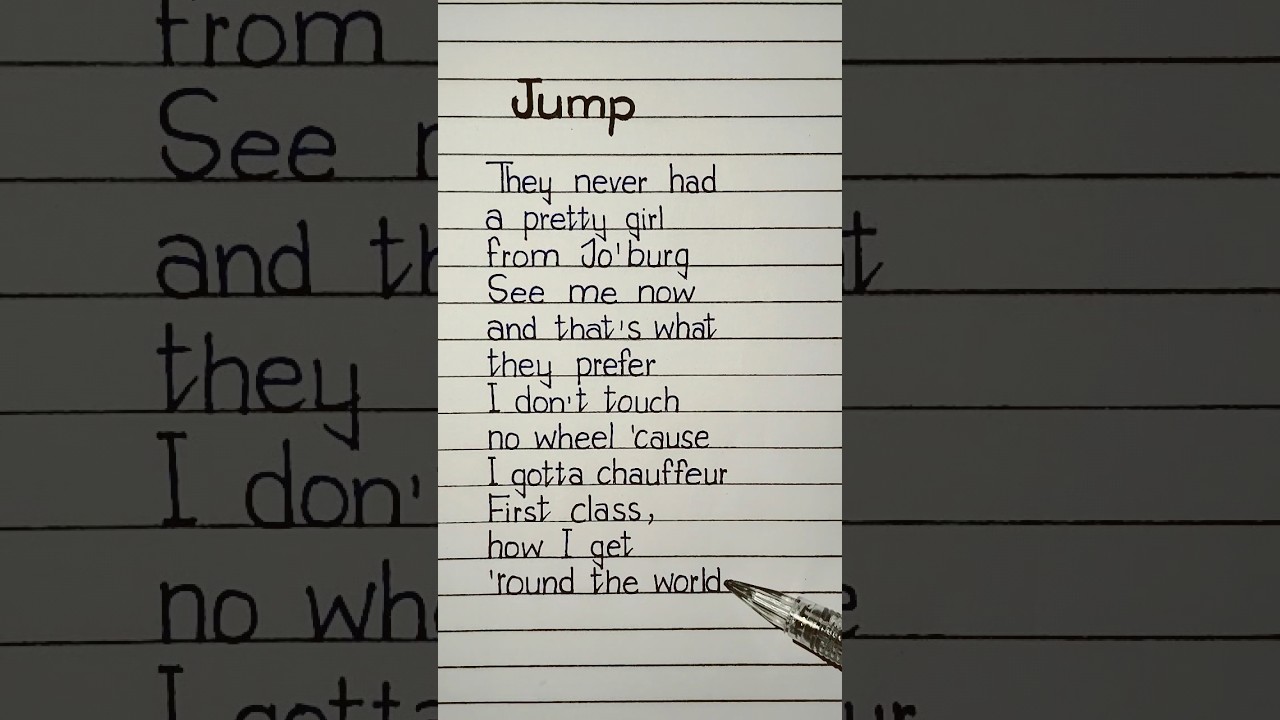 Jump
They never had
a pretty girl
from Jo'burg
See me now
and that's what
they prefer
I don't touch
no wheel 'cause
I gotta chauffeur
First class,
how I get
'round the world